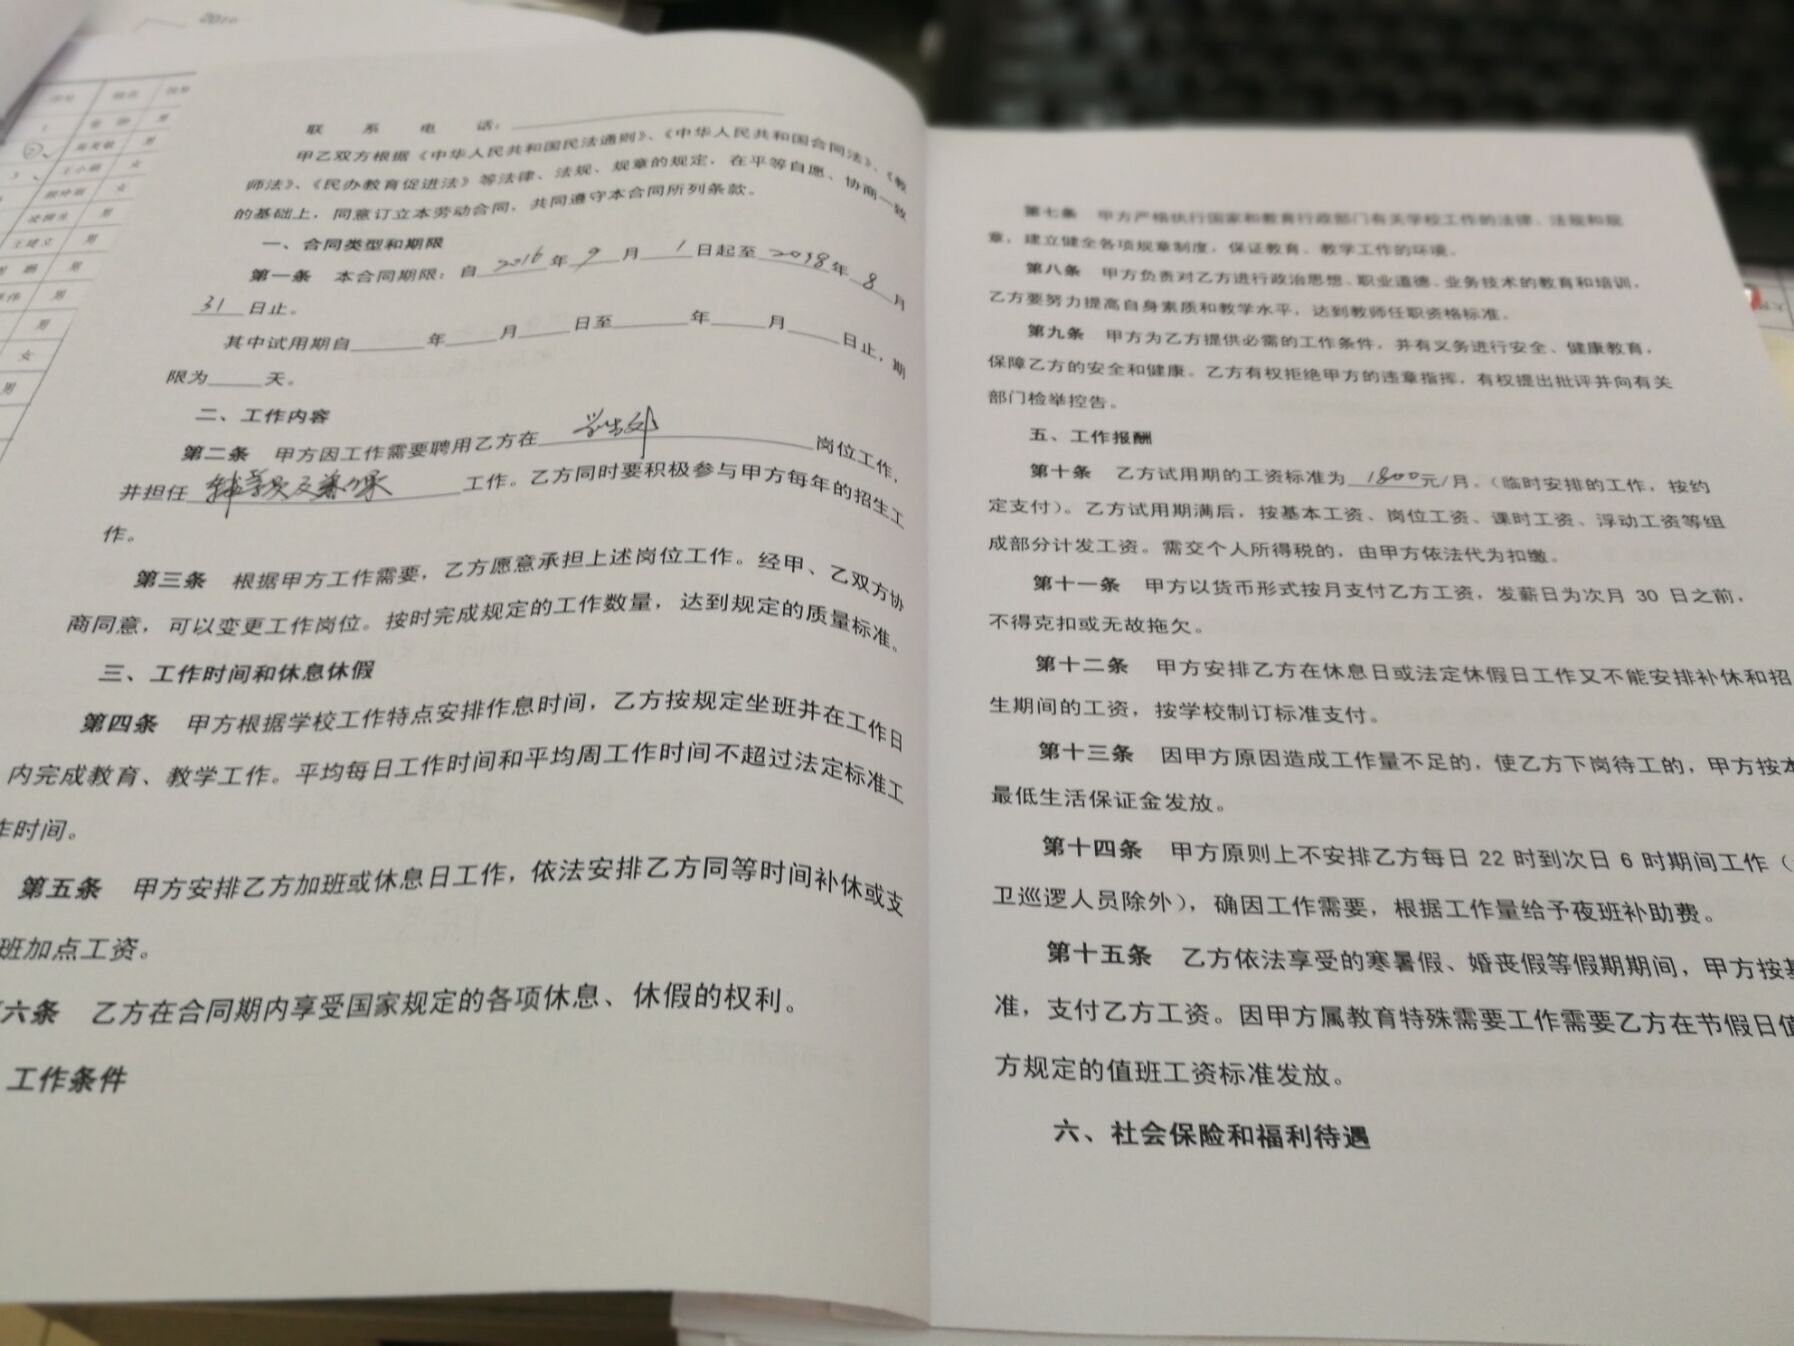 2010
联 系 电 话：
甲乙双方根据《中华人民共和国民法通则》、《中华人民共和国合同法》、《教
师法》、《民办教育促进法》等法律、法规、规章的规定，在平等自愿、协商一致
的基础上，同意订立本劳动合同，共同遵守本合同所列条款。
一、合同类型和期限
第一条 本合同期限：自 2016 年 9 月 1 日起至 2018 年 8 月
31 日止。
其中试用期自 年 月 日至 年 月 日止，期
限为 天。
二、工作内容
第二条 甲方因工作需要聘用乙方在 学生处 岗位工作，
并担任 辅导员及兼课 工作。乙方同时要积极参与甲方每年的招生工
作。
第三条 根据甲方工作需要，乙方愿意承担上述岗位工作。经甲、乙双方协
商同意，可以变更工作岗位。按时完成规定的工作数量，达到规定的质量标准。
三、工作时间和休息休假
第四条 甲方根据学校工作特点安排作息时间，乙方按规定坐班并在工作日
内完成教育、教学工作。平均每日工作时间和平均周工作时间不超过法定标准工
作时间。
第五条 甲方安排乙方加班或休息日工作，依法安排乙方同等时间补休或支
班加点工资。
六条 乙方在合同期内享受国家规定的各项休息、休假的权利。
工作条件
第七条 甲方严格执行国家和教育行政部门有关学校工作的法律、法规和规
章，建立健全各项规章制度，保证教育、教学工作的环境。
第八条 甲方负责对乙方进行政治思想、职业道德、业务技术的教育和培训，
乙方要努力提高自身素质和教学水平，达到教师任职资格标准。
第九条 甲方为乙方提供必需的工作条件，并有义务进行安全、健康教育，
保障乙方的安全和健康。乙方有权拒绝甲方的违章指挥，有权提出批评并向有关
部门检举控告。
五、工作报酬
第十条 乙方试用期的工资标准为 1800 元/月。（临时安排的工作，按约
定支付）。乙方试用期满后，按基本工资、岗位工资、课时工资、浮动工资等组
成部分计发工资。需交个人所得税的，由甲方依法代为扣缴。
第十一条 甲方以货币形式按月支付乙方工资，发薪日为次月 30 日之前，
不得克扣或无故拖欠。
第十二条 甲方安排乙方在休息日或法定休假日工作又不能安排补休和招
生期间的工资，按学校制订标准支付。
第十三条 因甲方原因造成工作量不足的，使乙方下岗待工的，甲方按本
最低生活保证金发放。
第十四条 甲方原则上不安排乙方每日 22 时到次日 6 时期间工作（
卫巡逻人员除外），确因工作需要，根据工作量给予夜班补助费。
第十五条 乙方依法享受的寒暑假、婚丧假等假期期间，甲方按基
准，支付乙方工资。因甲方属教育特殊需要工作需要乙方在节假日值
方规定的值班工资标准发放。
六、社会保险和福利待遇